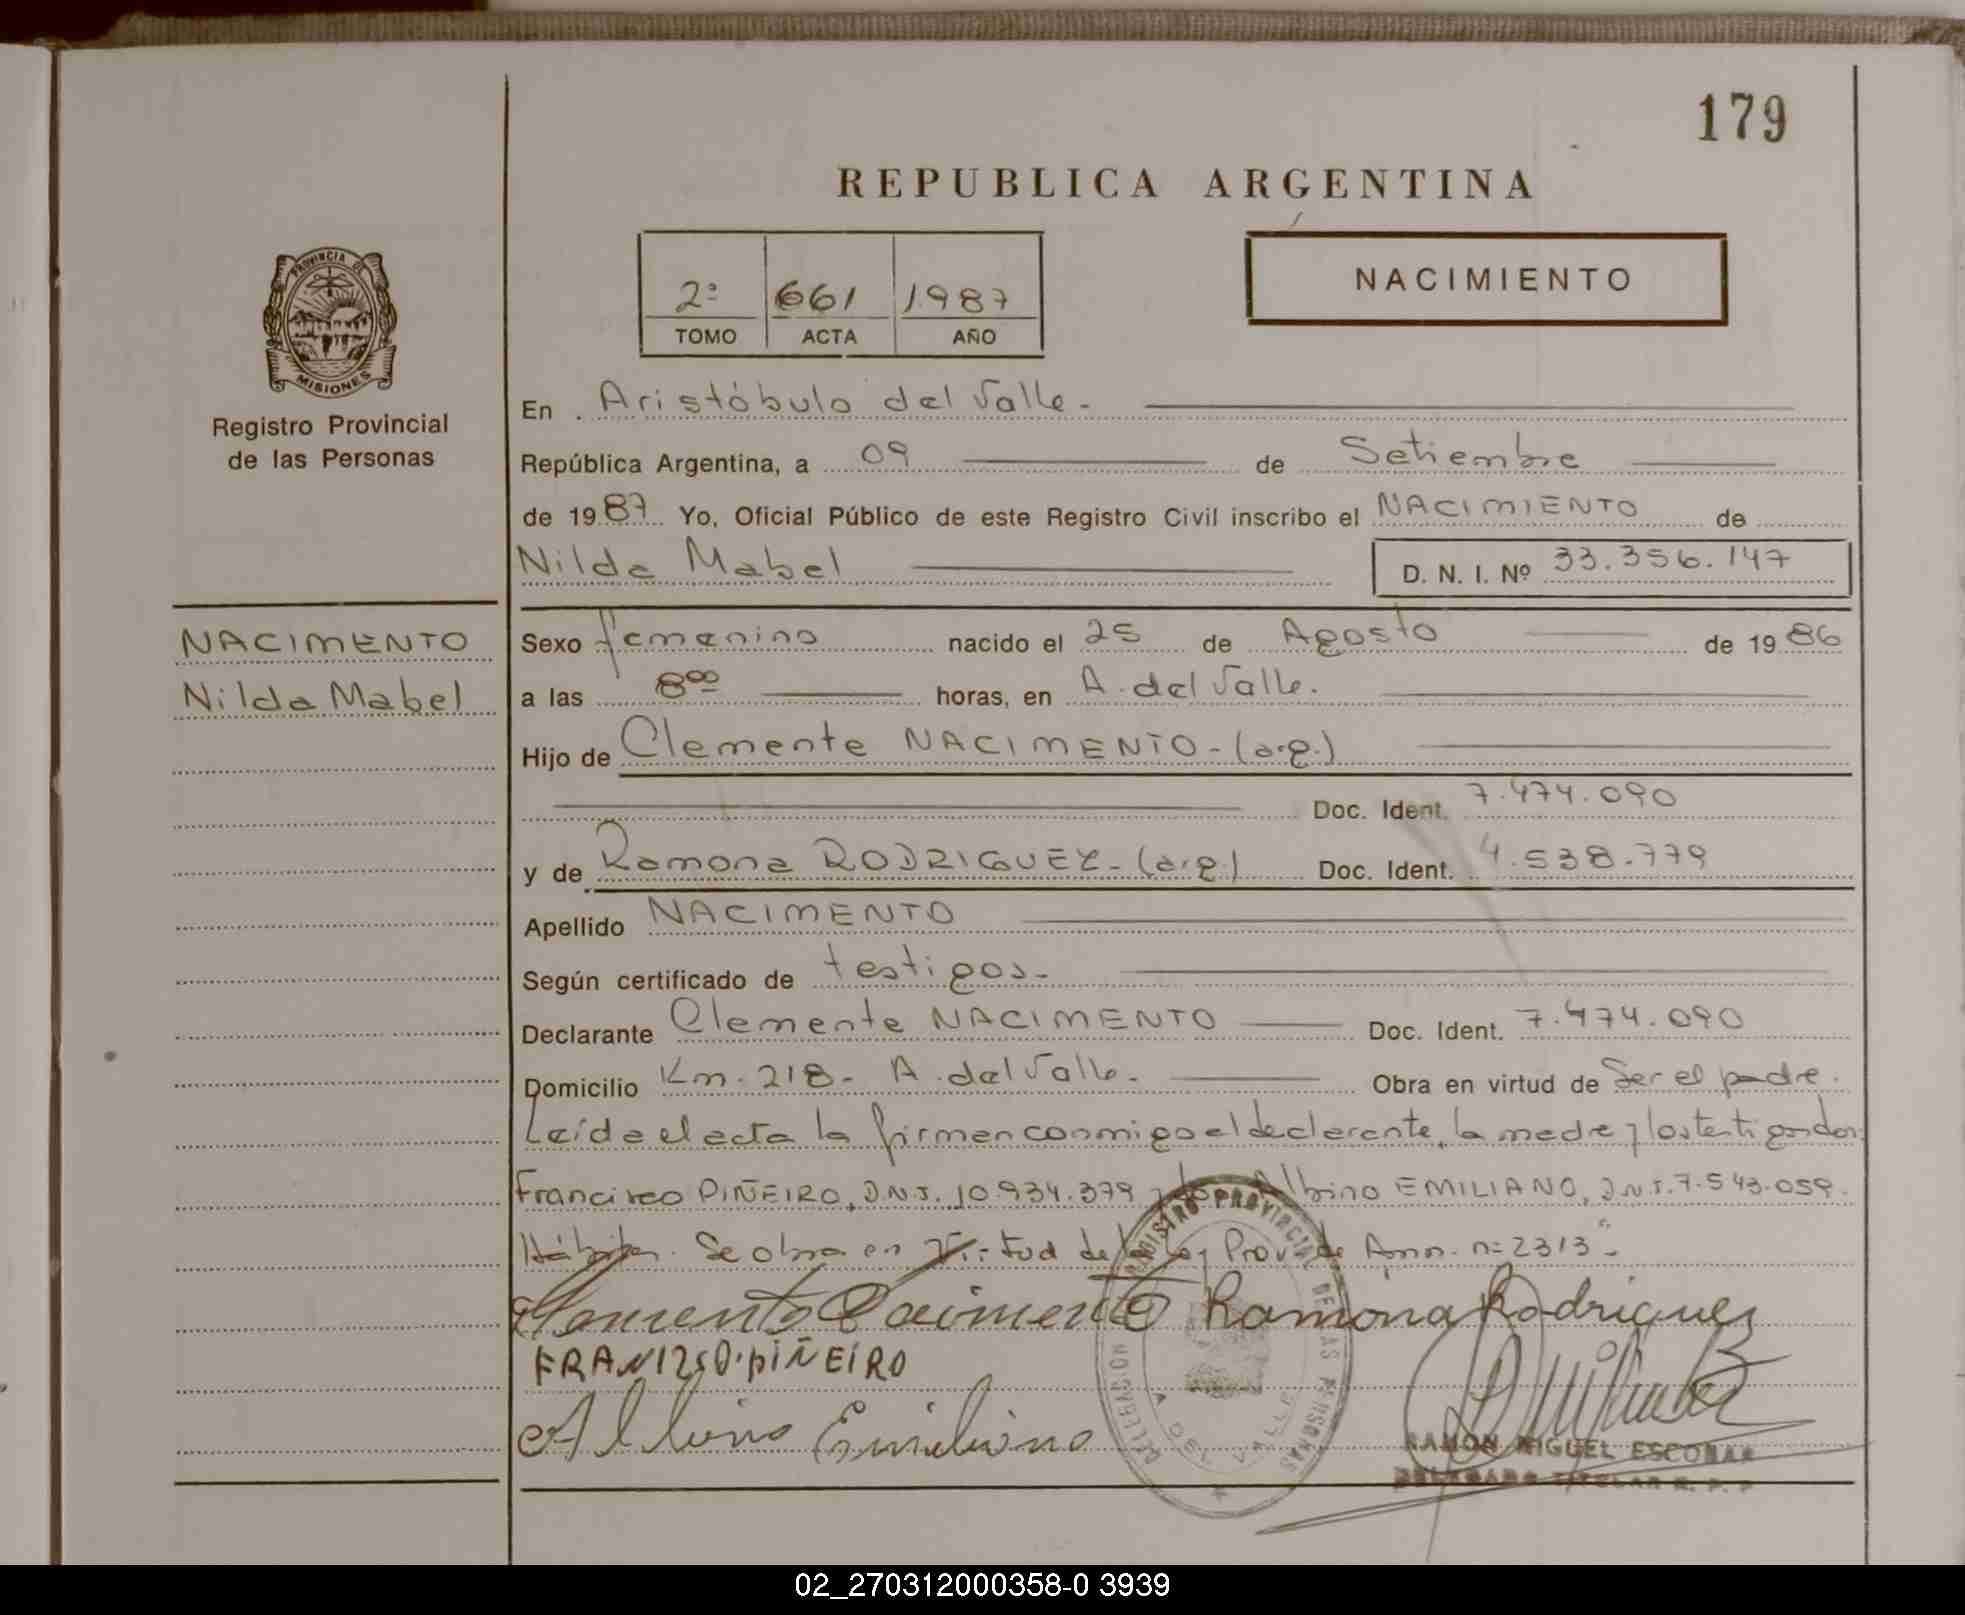 179
REPUBLICA ARGENTINA
2º 661 1987
TOMO ACTA AÑO
NACIMIENTO
PROVINCIA DE
MISIONES
Registro Provincial
de las Personas
NACIMENTO
Nilda Mabel
En Aristóbulo del Valle.-
República Argentina, a 09 de Setiembre
de 1987 Yo, Oficial Público de este Registro Civil inscribo el NACIMIENTO de
Nilda Mabel D. N. I. Nº 33.356.147
Sexo femenino nacido el 25 de Agosto de 1986
a las 800 horas, en A. del Valle.
Hijo de Clemente NACIMENTO-(arg.)
Doc. Ident. 7.474.090
y de Ramona RODRIGUEZ-(arg.) Doc. Ident. 4.538.779
Apellido NACIMENTO
Según certificado de testigos.-
Declarante Clemente NACIMENTO Doc. Ident. 7.474.090
Domicilio Km. 218- A. del Valle. Obra en virtud de Ser el padre.
Leída el acta la firman conmigo el declarante, la madre y los testigos don
Francisco PIÑEIRO, D.N.I. 10.934.379 y don Albino EMILIANO, D.N.I. 7.543.059.
Hábiles. Se obra en Virtud de la Ley Prov. de Amn. nº 2313".
Clemente Nacimento Ramona Rodriguez
FRANIZCO PIÑEIRO
Albino Emiliano
REGISTRO PROVINCIAL DE LAS PERSONAS
DELEGACION
A. DEL VALLE
RAMON MIGUEL ESCOBAR
DELEGADO TITULAR R. P. P
02_270312000358-0 3939